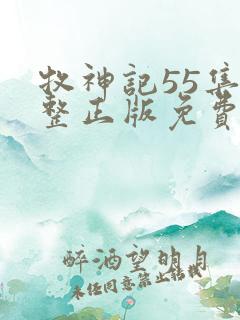 牧神记55集
整正版免费
醉酒望明月
未经同意禁止转载